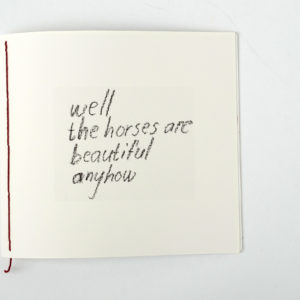 well
the horses are
beautiful
anyhow